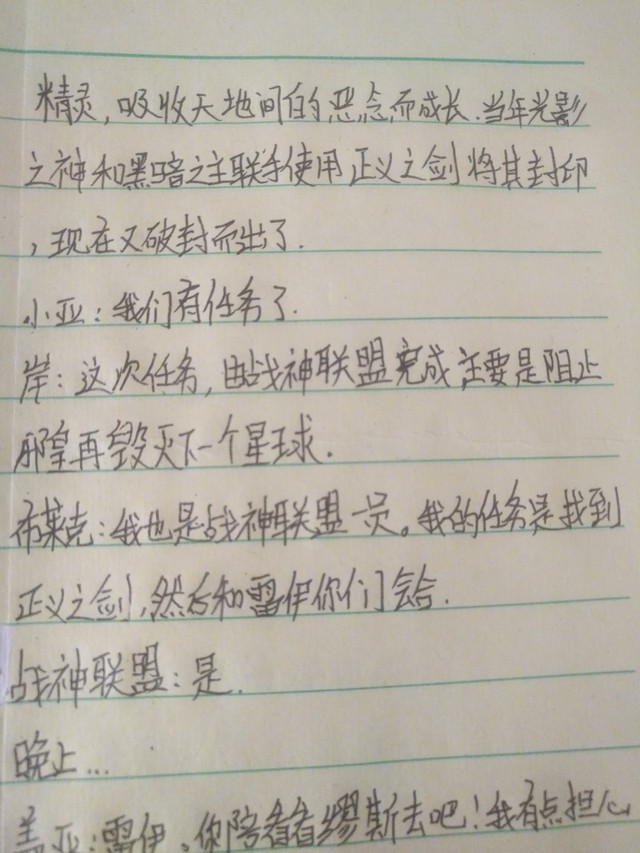 精灵,吸收天地间的恶念而成长.当年光影
之神和黑暗之主联手使用正义之剑将其封印
,现在又破封而出了.
小亚:我们有任务了.
岸:这次任务,由战神联盟完成,主要是阻止
邪皇再毁灭下一个星球.
布莱克:我也是战神联盟一员。我的任务是找到
正义之剑,然后和雷伊你们会合.
战神联盟:是.
晚上...
盖亚:雷伊,你陪着看缪斯去吧!我有点担心